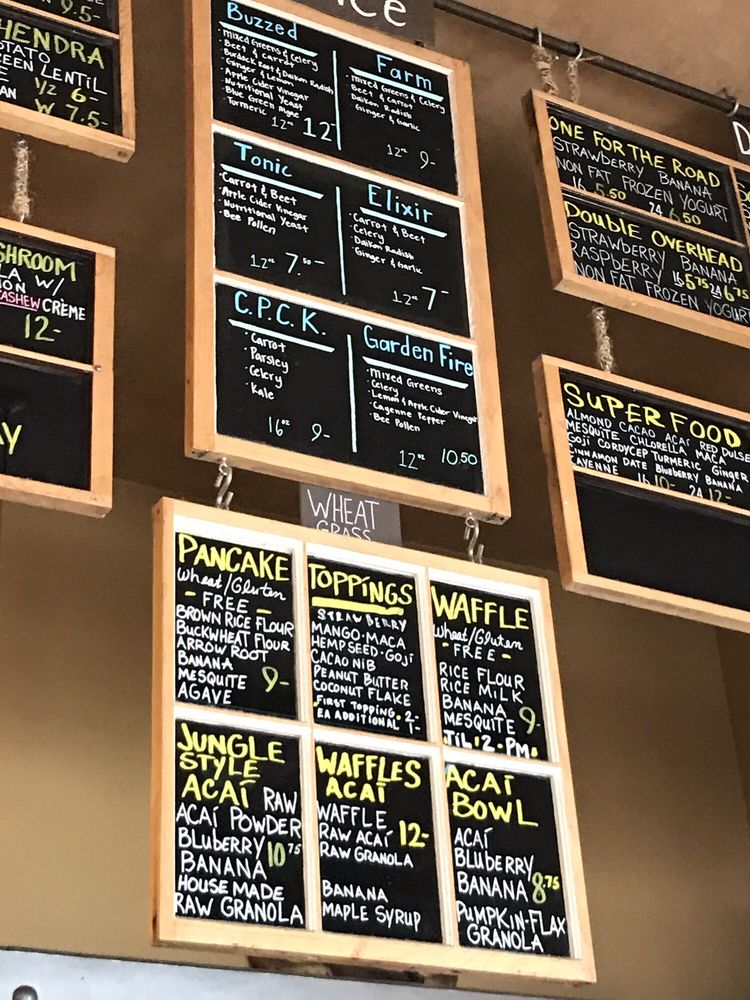 9.5-
HENDRA
OTATO
EEN LENTIL
1/2 6-
W 7.5-
SHROOM
LA W/
ION
CASHEW CRÈME
12-
AY
ce
Buzzed
·Mixed Greens & Celery
·Beet & Carrot
·Burdock Root & Daikon Radish
·Ginger & Lemon
·Apple Cider Vinegar
·Nutritional Yeast
·Blue Green Algae
·Turmeric
12oz 12-
Farm
·Mixed Greens & Celery
·Beet & Carrot
·Daikon Radish
·Ginger & Garlic
12oz 9-
Tonic
·Carrot & Beet
·Apple Cider Vinegar
·Nutritional Yeast
·Bee Pollen
12oz 7.50-
Elixir
·Carrot & Beet
·Celery
·Daikon Radish
·Ginger & Garlic
12oz 7-
C.P.C.K.
·Carrot
·Parsley
·Celery
·Kale
16oz 9-
Garden Fire
·Mixed Greens
·Celery
·Lemon & Apple Cider Vinegar
·Cayenne Pepper
·Bee Pollen
12oz 10.50
WHEAT
GRASS
PANCAKE
Wheat/Gluten
- FREE -
BROWN RICE FLOUR
BUCKWHEAT FLOUR
ARROW ROOT
BANANA
MESQUITE 9-
AGAVE
TOPPINGS
STRAWBERRY
MANGO·MACA
HEMPSEED·GOJI
CACAO NIB
PEANUT BUTTER
COCONUT FLAKE
FIRST TOPPING·2-
EA ADDITIONAL 1-
WAFFLE
Wheat/Gluten
- FREE -
RICE FLOUR
RICE MILK
BANANA
MESQUITE 9-
TIL·2·PM·
JUNGLE
STYLE
ACAÍ RAW
ACAÍ POWDER
BLUBERRY 10.75
BANANA
HOUSE MADE
RAW GRANOLA
WAFFLES
ACAÍ
WAFFLE
RAW ACAÍ 12-
RAW GRANOLA
BANANA
MAPLE SYRUP
ACAÍ
BOWL
ACAÍ
BLUBERRY
BANANA 8.75
PUMPKIN-FLAX
GRANOLA
D
ONE FOR THE ROAD
STRAWBERRY BANANA
NON FAT FROZEN YOGURT
16 5.50 24 6.50
DOUBLE OVERHEAD
STRAWBERRY BANANA
RASPBERRY 16 5.75 24 6.75
NON FAT FROZEN YOGURT
SUPER FOOD
ALMOND CACAO ACAÍ RED DULSE
MESQUITE CHLORELLA MACA
GOJI CORDYCEP TURMERIC GINGER
CINNAMON DATE BLUEBERRY BANANA
CAYENNE 16 10- 24 12-